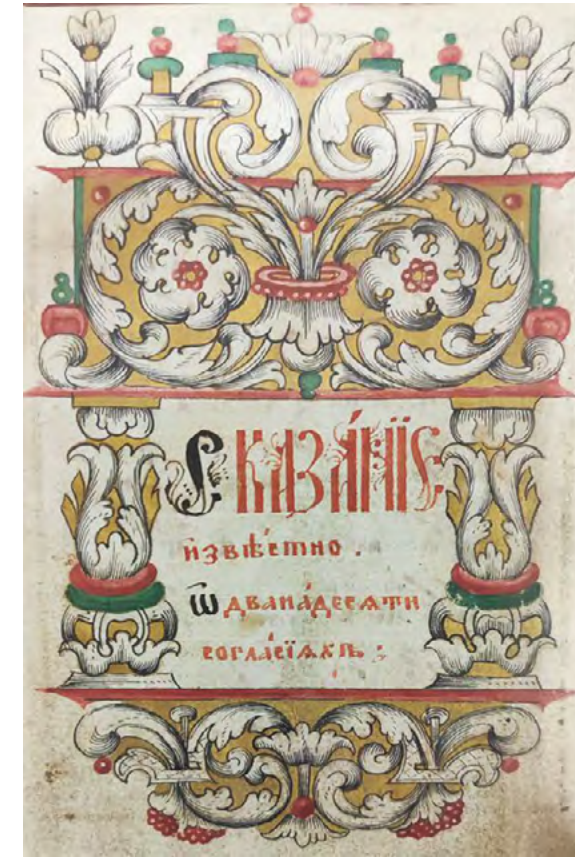 Сказа́нїе
извѣ́стно .
ѿ двана́десѧти
согла́сїѧхъ :